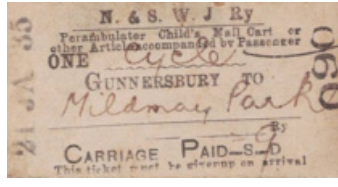 N. & S. W. J Ry
Perambulator Child's Mail Cart or
other Article accompanied by Passenger
ONE Cycle
GUNNERSBURY TO
Mildmay Park
Ry
CARRIAGE PAID—S—D
This ticket must be given up on arrival
21 JA 35
060